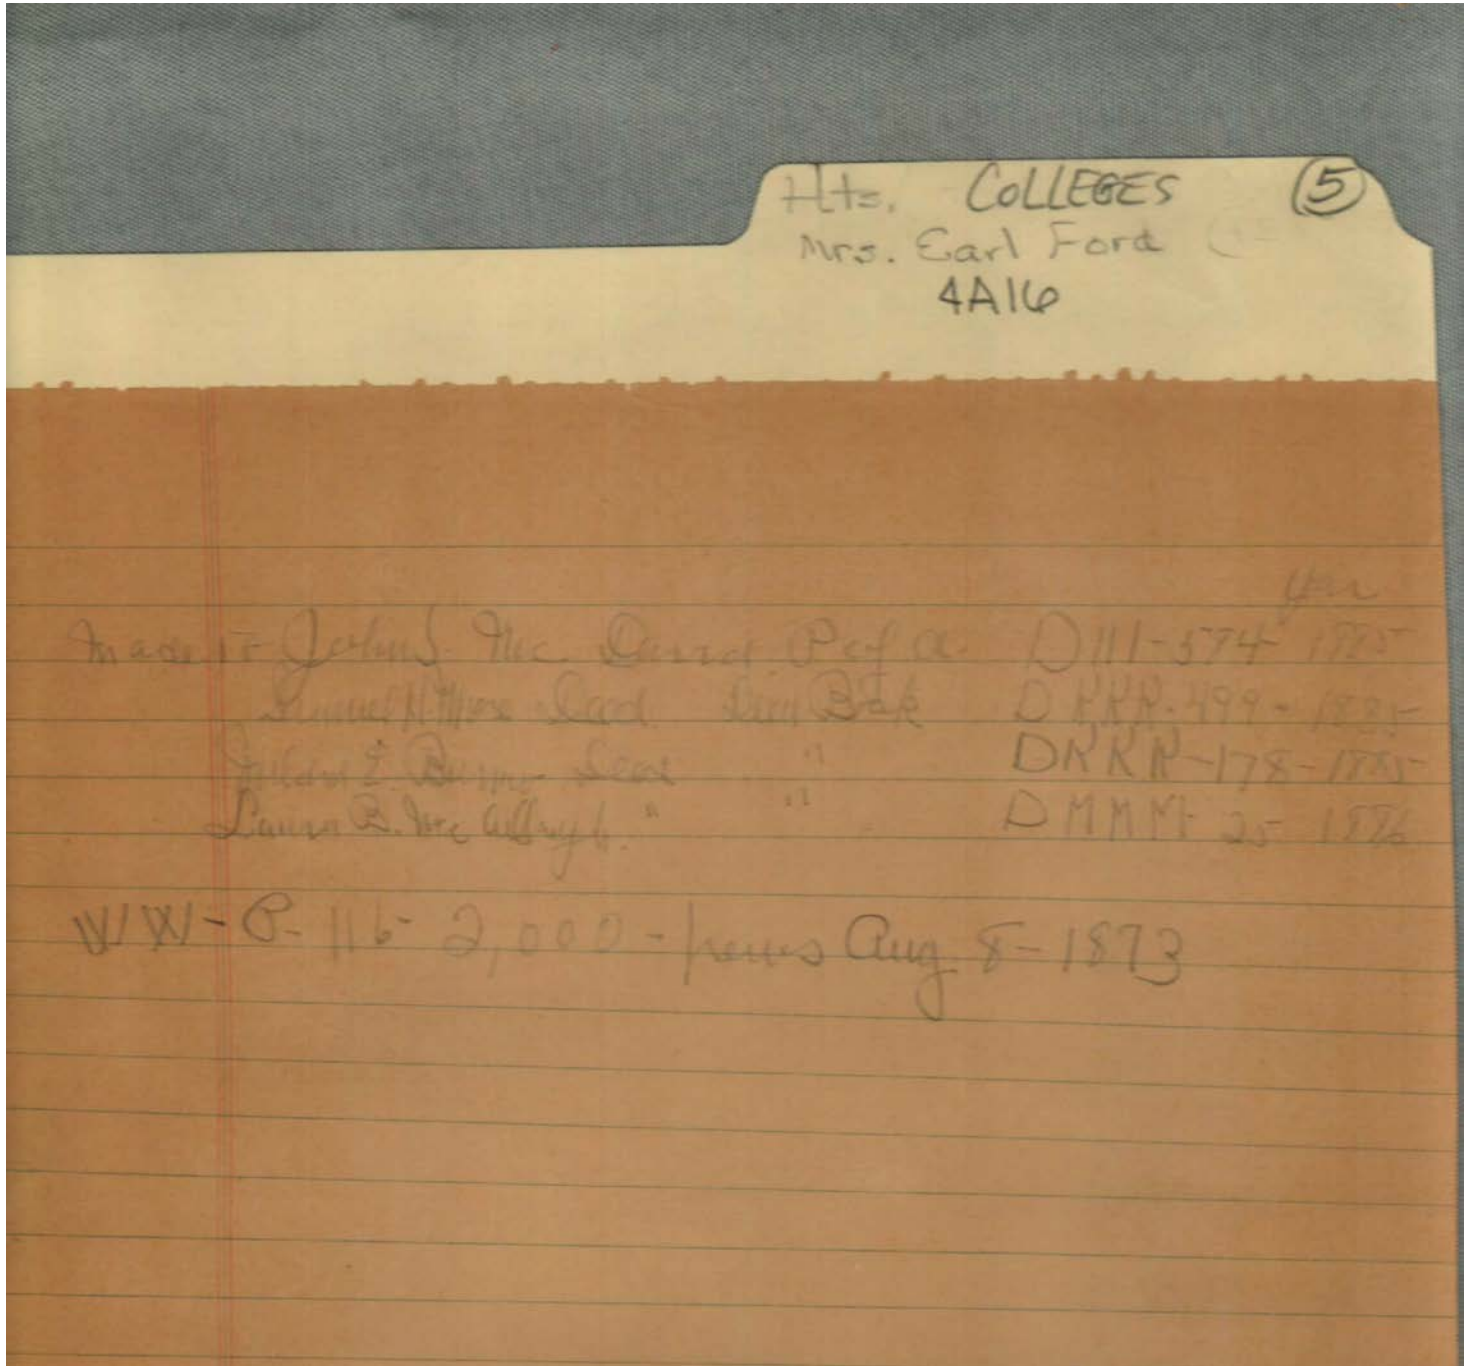 Hts. COLLEGES 5
Mrs. Earl Ford
4A16
year
made to John S. Mc David P of A D 111-574 1885
Samuel H. Deed D KKK-499-1885
Deed " D KKK-178-1885
Laura B. Mc " " D MMM 25 1886
WW-P-116-2,000- Aug 8-1873